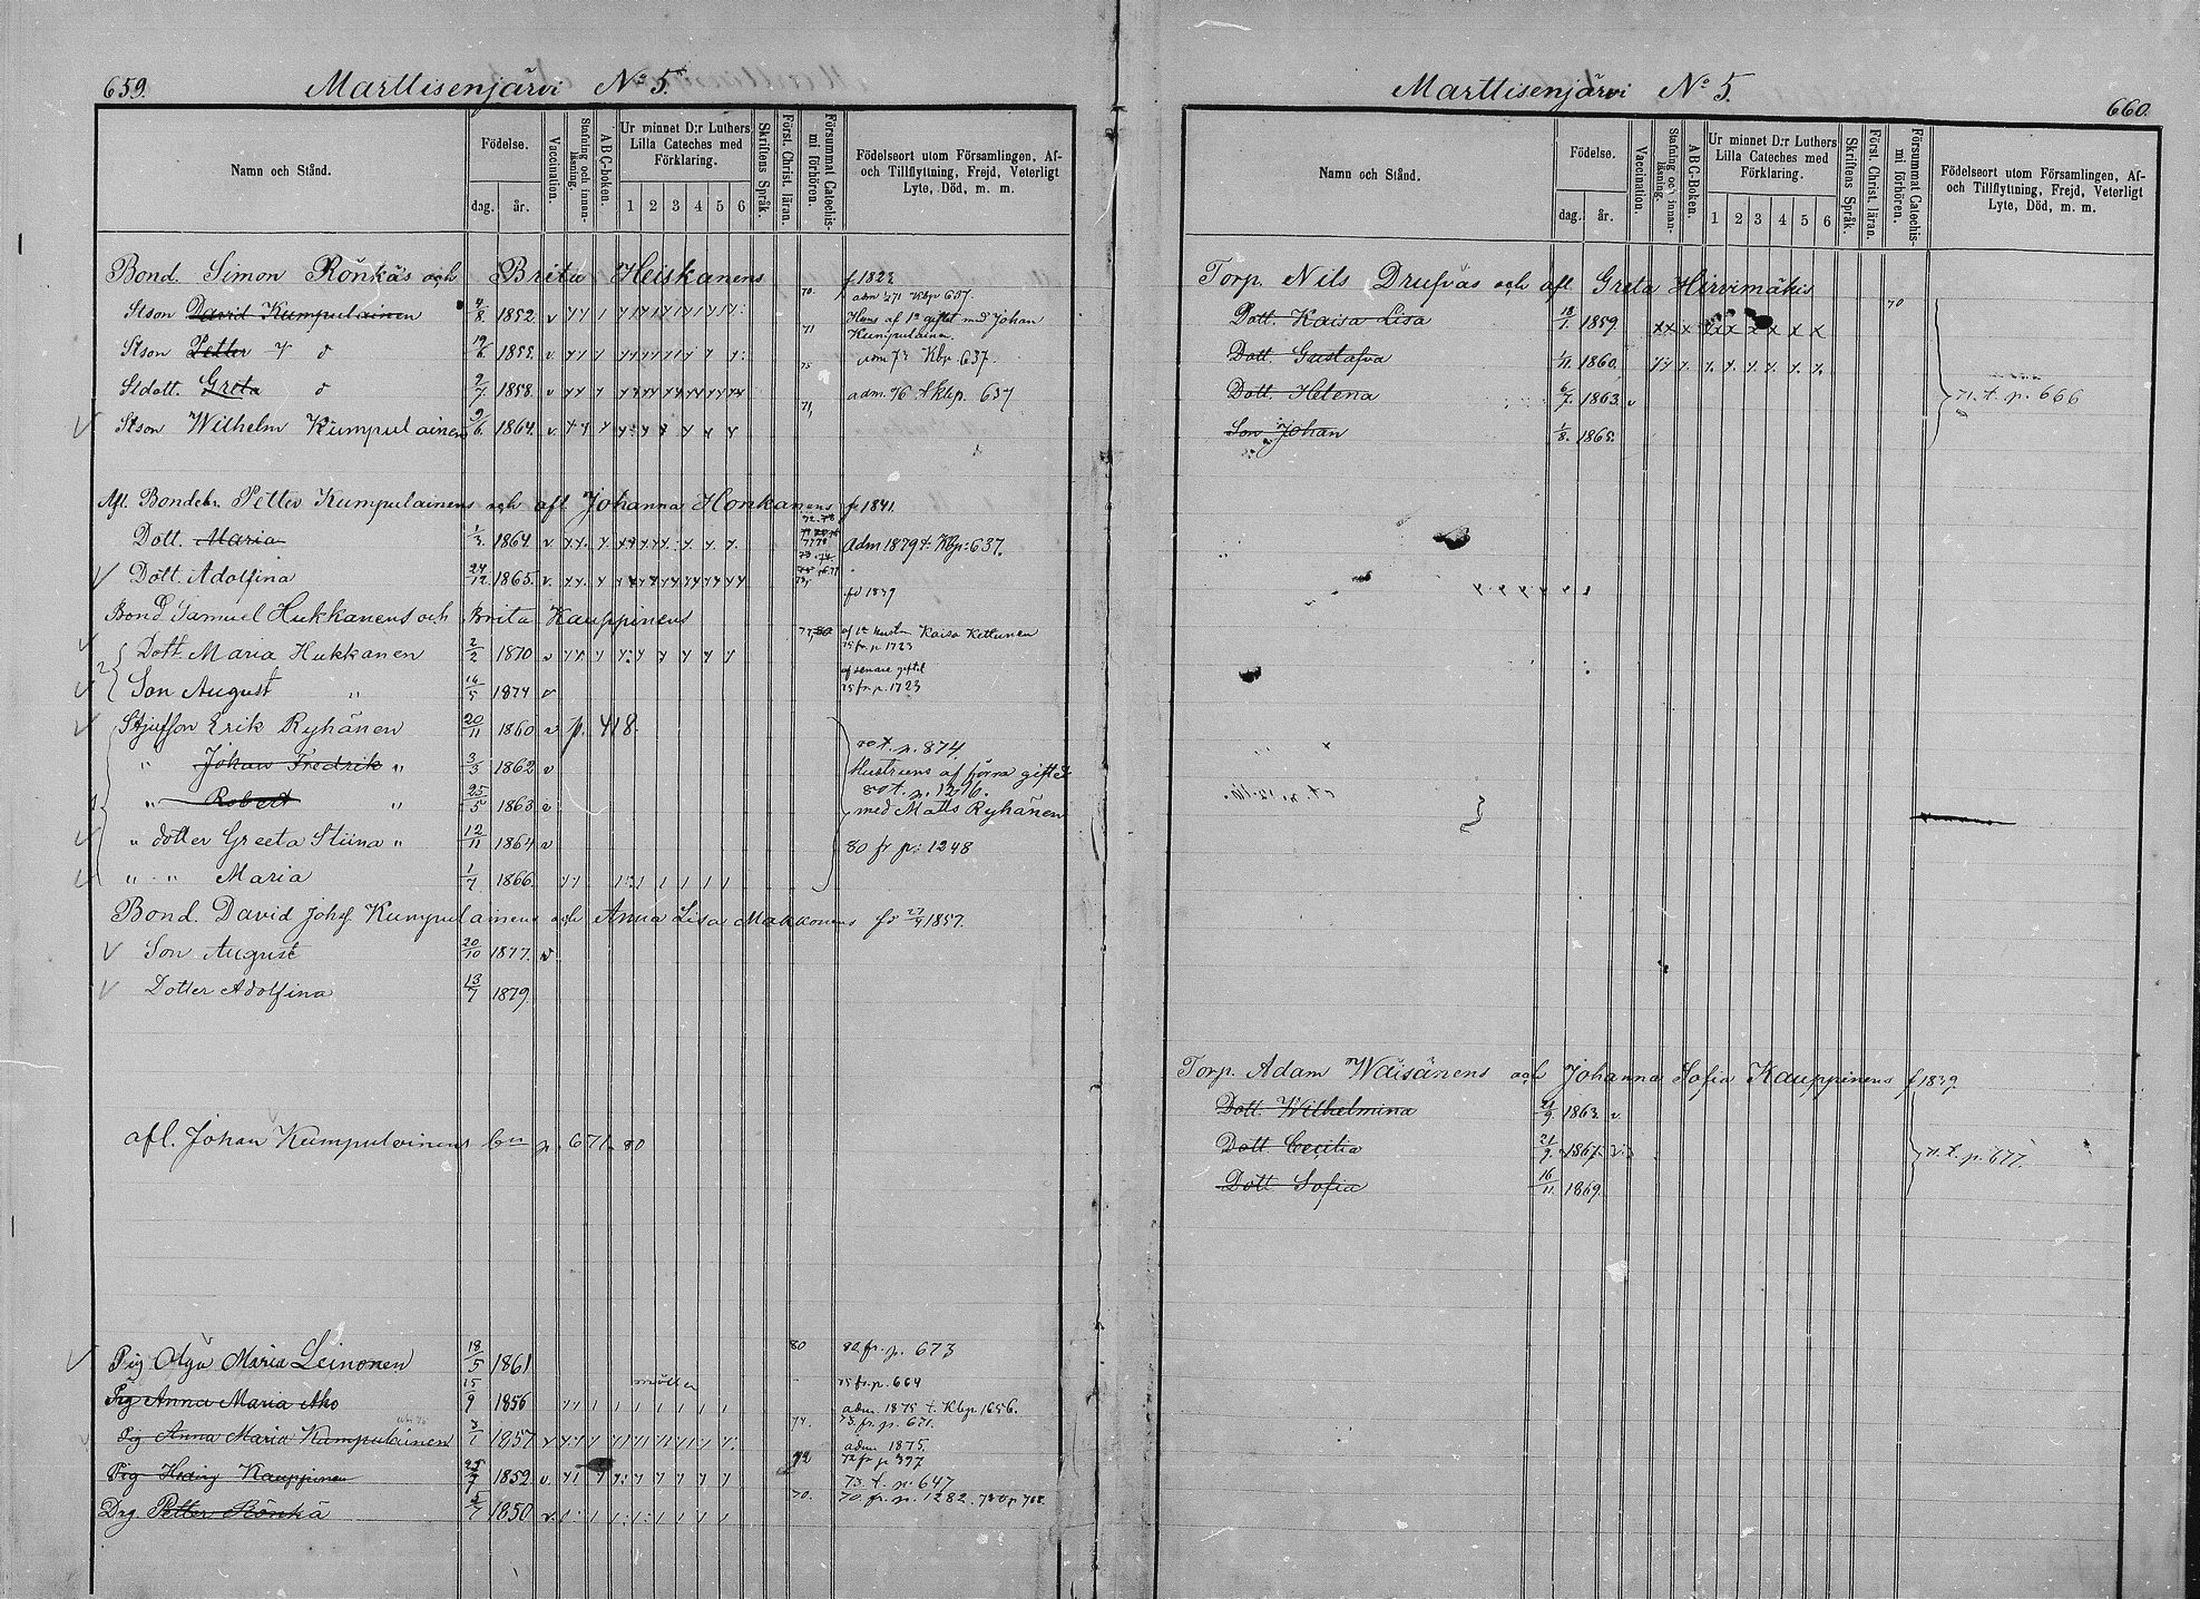 659.
Marttisenjärvi No 5.
Namn och Stånd.
Födelse.
dag. år.
Vaccination.
Stafning och innan-läsning.
A B C-boken.
Ur minnet D:r Luthers Lilla Cateches med Förklaring.
1 2 3 4 5 6
Skriftens Språk.
Först. Christ. läran.
Försummat Catechis-mi förhören.
Födelseort utom Församlingen, Af- och Tillflyttning, Frejd, Veterligt Lyte, Död, m. m.
Bond. Simon Rönkäs och Brita Heiskanens f. 1822
Stson David Kumpulainen 4/8. 1852. v 70. adm 71 Kbp 637.
Hans af 1a giftet med Johan Kumpulainen.
Stson Petter 19/6 1855. v. 71 Kbp. 637.
Stdott. Greta 9/7. 1858. v 75 adm. 76 t kbp. 637
Stson Wilhelm Kumpulainen 9/6. 1864. v. 71,
Afl. Bondebr. Petter Kumpulainens och afl Johanna Honkanens f. 1841.
Dott. Maria 1/3. 1864. v Adm 1879 t. Kbp: 637.
Dott. Adolfina 24/12. 1865. v.
Bond Samuel Hukkanens och Brita Kauppinens fö 1839
Dott Maria Hukkanen 2/2 1870 v 77, 80 af 1a hustr Kaisa Kettunen
75 fr. p 1723
Son August " 16/5 1874 v af senare giftet
75 fr. p. 1723
Stjufson Erik Ryhänen 20/11 1860 v p. 418.
80 t. p. 874.
" Johan Fredrik " 3/3 1862 v Hustruns af förra giftet
80 t. p. 1276.
" Robert " 25/5 1863 v med Matts Ryhänen
" dotter Greeta Stiina " 12/11 1864 v 80 fr p: 1248
" " Maria 1/7 1866.
Bond. David Johsf. Kumpulainens och Anna Lisa Makkonens fö 27/9 1857.
Son August 20/10 1877. v
Dotter Adolfina 13/7 1879.
afl. Johan Kumpulainens p. 671. 80
Pig Olga Maria Leinonen 18/5 1861 80 80 fr. p. 673
Pig Anna Maria Aho 15/9 1856 75 fr. p. 664
adm. 1875 t. Kbp. 1656.
Pig Anna Maria Kumpulainen 3/1 1857 v 74. 73. fr. p. 671.
adm 1875.
Pig Hedvig Kauppinen 25/7 1852 v. 72 72 fr p 397
73. t. p. 647
Drg. Petter Rönkä 5/7 1850 v. 70. 70. fr. p. 1282.
Marttisenjärvi No 5.
660.
Namn och Stånd.
Födelse.
dag. år.
Vaccination.
Stafning och innan-läsning.
A B C-Boken.
Ur minnet D:r Luthers Lilla Cateches med Förklaring.
1 2 3 4 5 6
Skriftens Språk.
Först. Christ. läran.
Försummat Catechis-mi förhören.
Födelseort utom Församlingen, Af- och Tillflyttning, Frejd, Veterligt Lyte, Död, m. m.
Torp. Nils Drufvas och afl Greta Hirvimäkis
Dott. Kaisa Lisa 18/1. 1859. 70
Dott. Gustafva 1/11. 1860.
Dott. Helena 6/7. 1863. v 71. t. p. 666
Son Johan 1/8. 1865.
Torp. Adam Wäisänens och Johanna Sofia Kauppinens f 1839.
Dott. Wilhelmina 21/9. 1863. v.
Dott. Cecilia 21/9. 1867. v. 71. t. p. 677.
Dott Sofia 16/11. 1869.